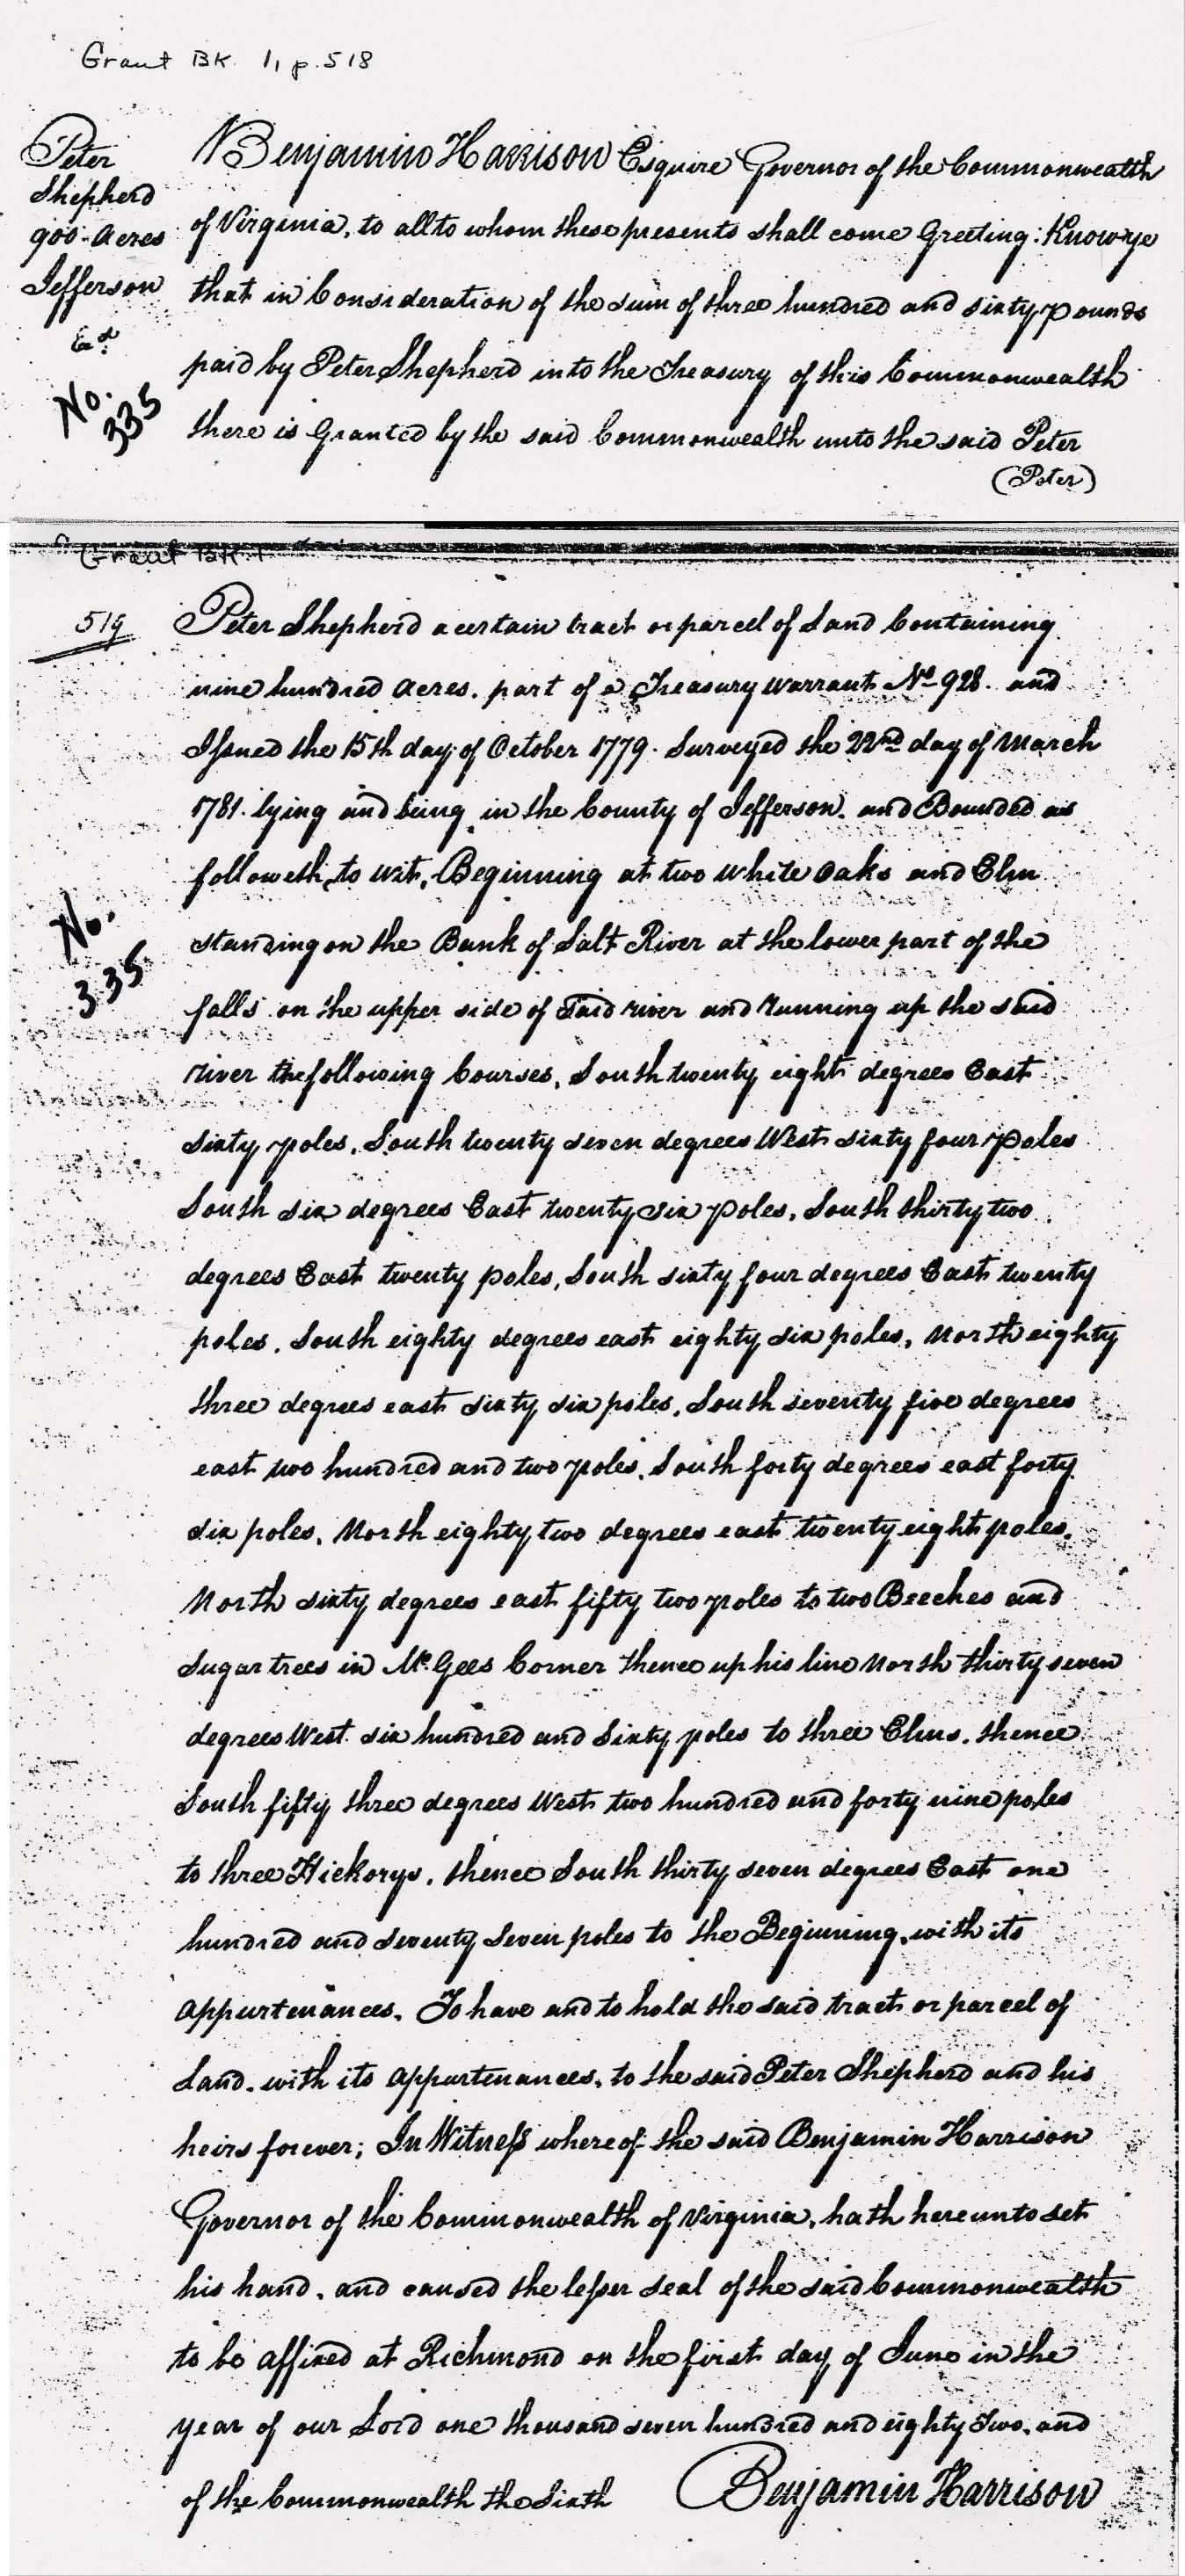 Grant BK. 1, p. 518
Peter
Shepherd
900. Acres
Jefferson
Exd.
No.
335
Benjamin Harrison Esquire Governor of the Commonwealth
of Virginia, to all to whom these presents shall come Greeting: Know ye
that in Consideration of the sum of three hundred and sixty pounds
paid by Peter Shepherd into the Treasury of this Commonwealth
there is Granted by the said Commonwealth unto the said Peter
(Peter)
Grant BK. 1
519
Peter Shepherd a certain tract or parcel of Land Containing
nine hundred Acres. part of a Treasury Warrant No. 928. and
Issued the 15th day of October 1779. Surveyed the 22nd day of March
1781. lying and being in the County of Jefferson. and Bounded as
followeth, to wit, Beginning at two White Oaks and Elm
No.
335
standing on the Bank of Salt River at the lower part of the
falls on the upper side of said river and running up the said
river the following Courses, South twenty eight degrees East
sixty poles, South twenty seven degrees West sixty four poles
South six degrees East twenty six poles, South thirty two
degrees East twenty poles, South sixty four degrees East twenty
poles, South eighty degrees east eighty six poles, North eighty
three degrees east sixty six poles, South seventy five degrees
east two hundred and two poles, South forty degrees east forty
six poles, North eighty two degrees east twenty eight poles,
North sixty degrees east fifty two poles to two Beeches and
sugar trees in Mc.Gees Corner thence up his line North thirty seven
degrees West six hundred and Sixty poles to three Elms, thence
South fifty three degrees West two hundred and forty nine poles
to three Hickorys, thence South thirty seven degrees East one
hundred and seventy seven poles to the Beginning, with its
Appurtenances. To have and to hold the said tract or parcel of
Land. with its Appurtenances, to the said Peter Shepherd and his
heirs forever; In Witness whereof the said Benjamin Harrison
Governor of the Commonwealth of Virginia, hath hereunto set
his hand, and caused the lesser seal of the said Commonwealth
to be affixed at Richmond on the first day of June in the
year of our Lord one thousand seven hundred and eighty Two, and
of the Commonwealth the Sixth
Benjamin Harrison